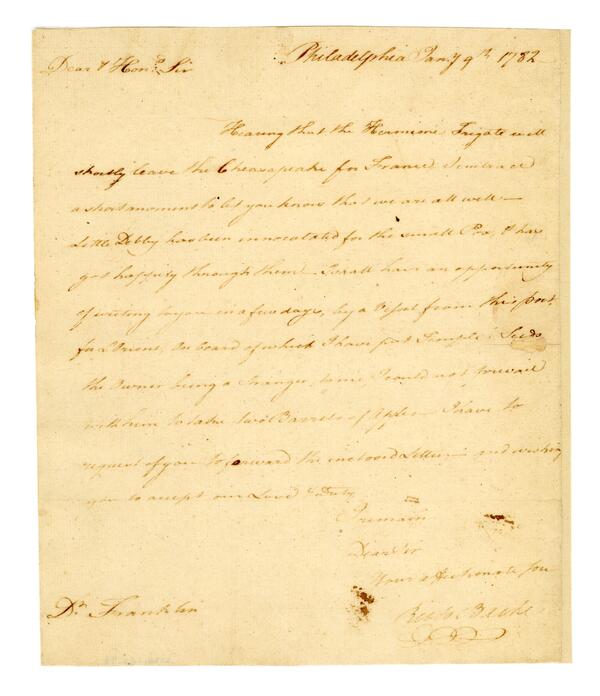 Philadelphia Jany 9th 1782
Dear & Hond. Sir
Hearing that the Hermione Frigate will
shortly leave the Cheasapeake for France I embrace
a short moment to let you know that we are all well—
Little Debby has been innoculated for the small Pox, & has
got happily through them— I shall have an opportunity
of writing to you in a few days, by a Vessel from this port
for L'Orient, On board of which I have put Temple's Seeds
the Owner being a Stranger to me I could not prevail
with him to take two Barrels of Apples— I have to
request of you to forward the enclosed Letters— and wishing
you to accept our Love & Duty
I remain
Dear Sir
Your affectionate Son
Richd. Bache
Dr. Franklin